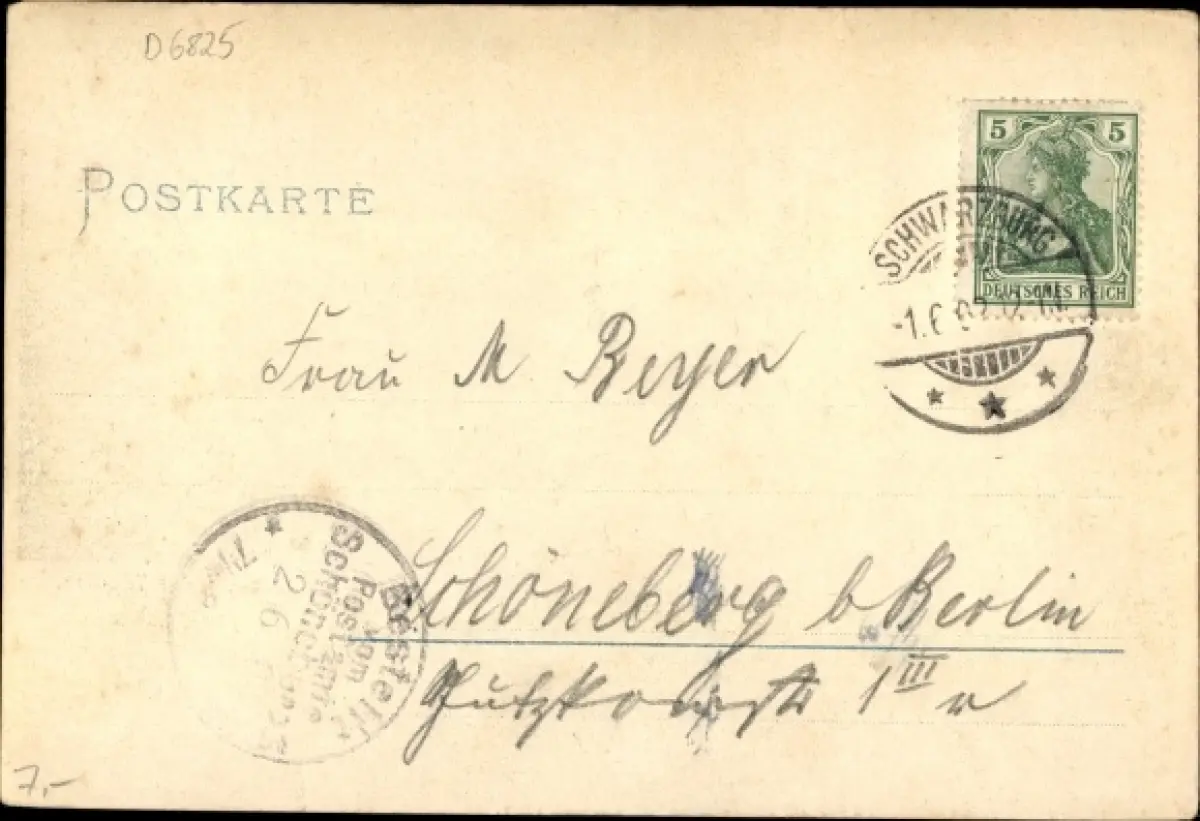 D6825
POSTKARTE
5 5
DEUTSCHES REICH
SCHWARZBURG
-1.6.02
Frau M Beyer
Schöneberg b Berlin
1 III r
Bestellt
vom
Postamte
Schöneberg
2 6
7,-